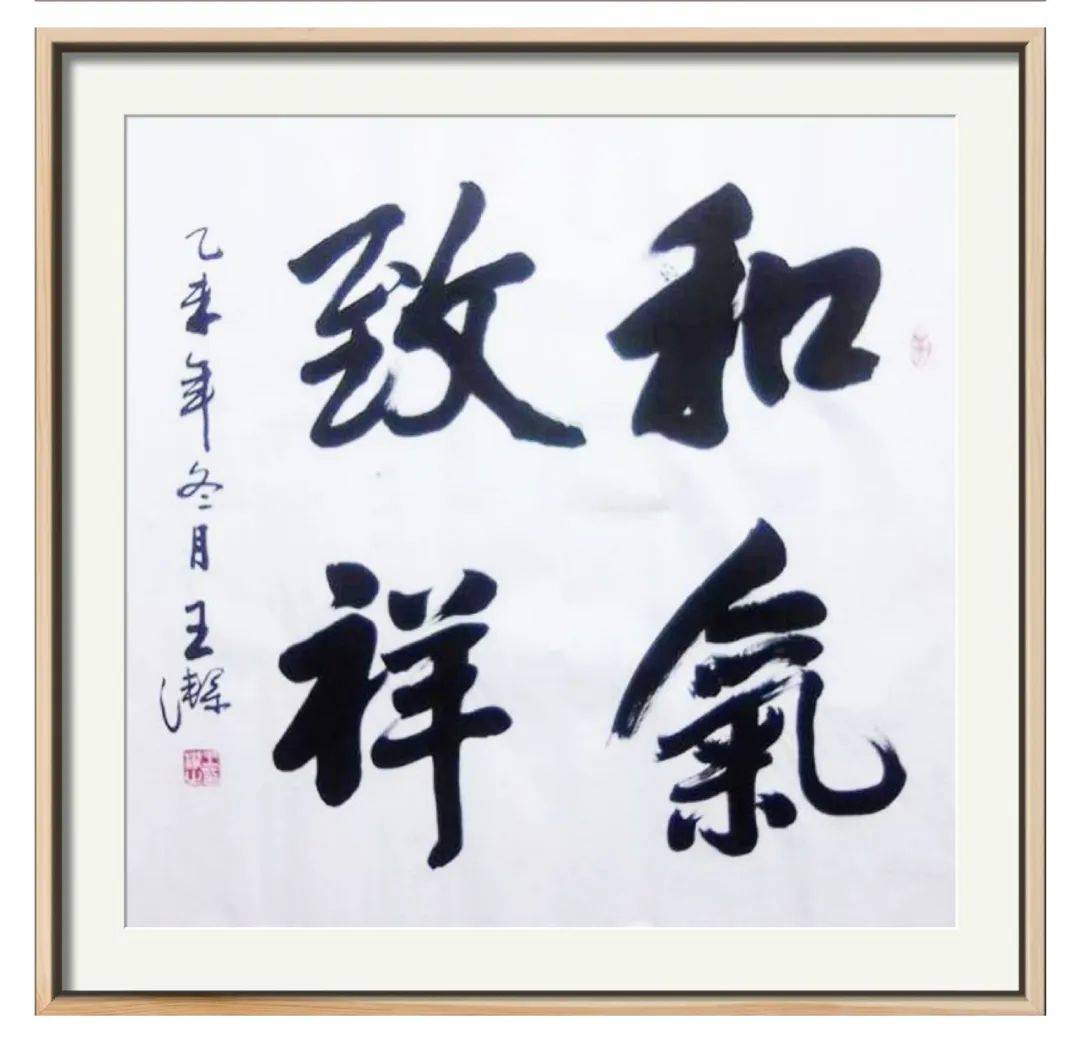 和氣
致祥
乙未年冬月王